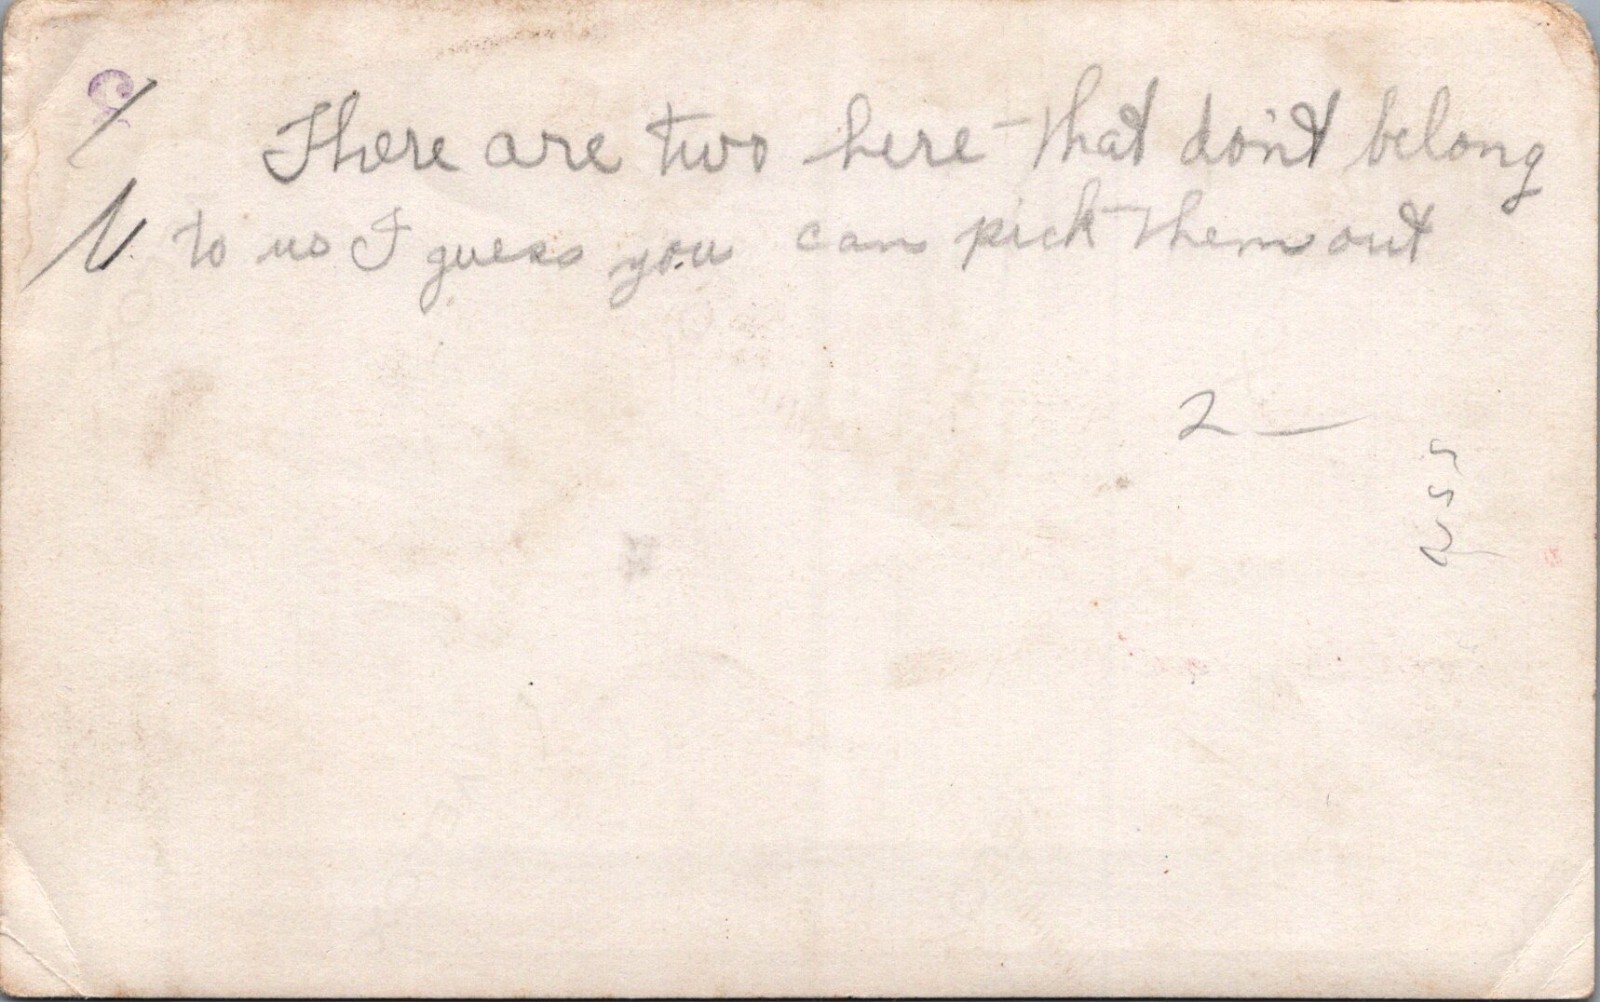 There are two here that don't belong
to us I guess you can pick them out
2 —